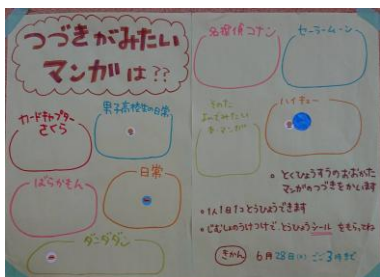 つづきがみたい
マンガは??
カードキャプター
さくら
男子高校生の日常
ばらかもん
日常
ダンダダン
名探偵コナン
セーラームーン
その他
よんでみたい
マンガ
ハイキュー
とくひょうすうのおおかた
マンガのつづきをかいます
1人1日1つとうひょうできます
じむしょのうけつけで、とうひょうシールをもらってね
きかん 6月28日(火)ごご3時まで